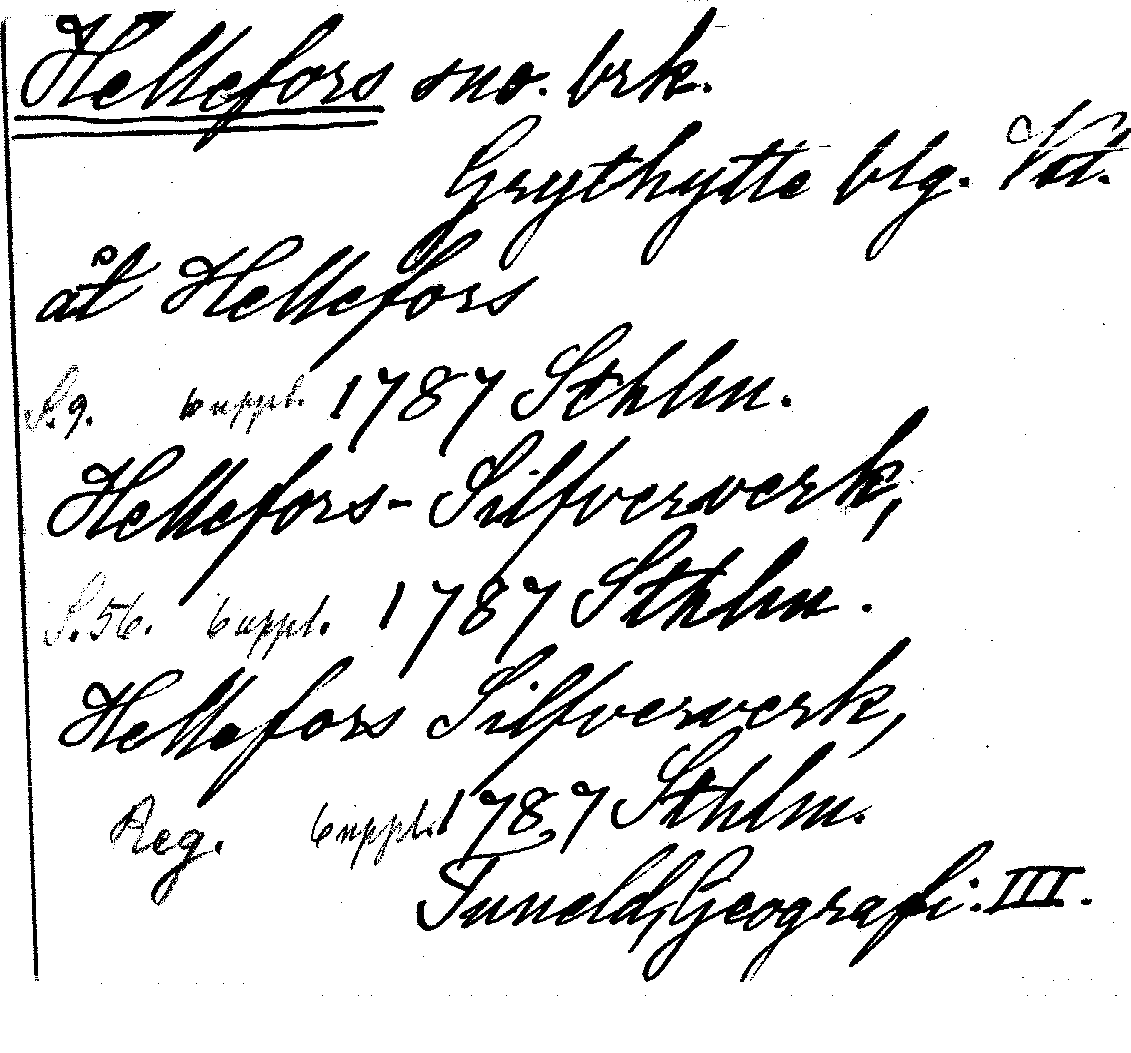 Hellefors sno. brk.
Grythytte blg. Vstt.
åt Hellefors
S.9. 6 uppl. 1787 Sthlm.
Hellefors-Silfververk,
S.56. 6 uppl. 1787 Sthlm.
Hellefors Silfververk,
Reg. 6 uppl. 1787 Sthlm.
Tuneld, Geografi. III.